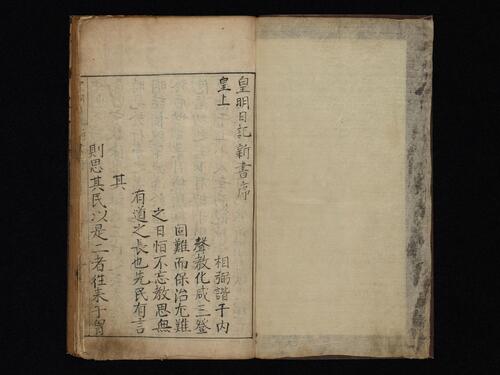 皇明日記新書序
皇上
相弼諧于內
聲教化咸三登
固難而保治尤難
之日怕不忘教思無
有道之長也先民有言
其
則思其民以是二者往來于胷